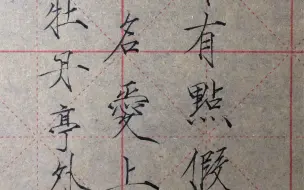 有點假
名愛上
牡丹亭外